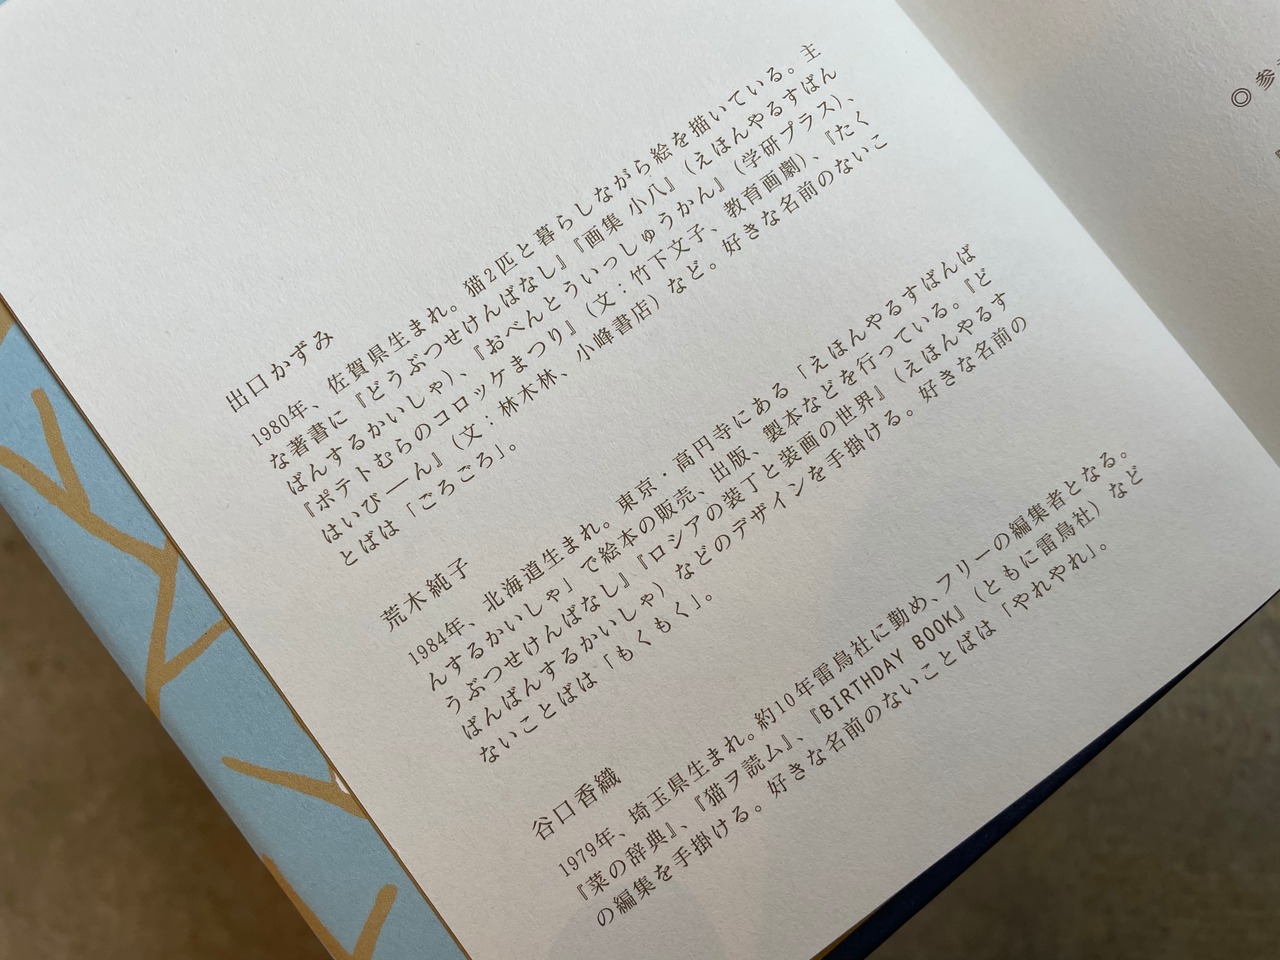 出口かずみ
1980年、佐賀県生まれ。猫2匹と暮らしながら絵を描いている。主
な著書に『どうぶつせけんばなし』『画集 小八』（えほんやるすばん
ばんするかいしゃ）、『おべんとういっしゅうかん』（学研プラス）、
『ポテトむらのコロッケまつり』（文：竹下文子、教育画劇）、『たく
はいびーん』（文：林木林、小峰書店）など。好きな名前のないこ
とばは「ごろごろ」。
荒木純子
1984年、北海道生まれ。東京・高円寺にある「えほんやるすばんば
んするかいしゃ」で絵本の販売、出版、製本などを行っている。『ど
うぶつせけんばなし』『ロシアの装丁と装画の世界』（えほんやるす
ばんばんするかいしゃ）などのデザインを手掛ける。好きな名前の
ないことばは「もくもく」。
谷口香織
1979年、埼玉県生まれ。約10年雷鳥社に勤め、フリーの編集者となる。
『菜の辞典』、『猫ヲ読ム』、『BIRTHDAY BOOK』（ともに雷鳥社）など
の編集を手掛ける。好きな名前のないことばは「やれやれ」。
◎ 参